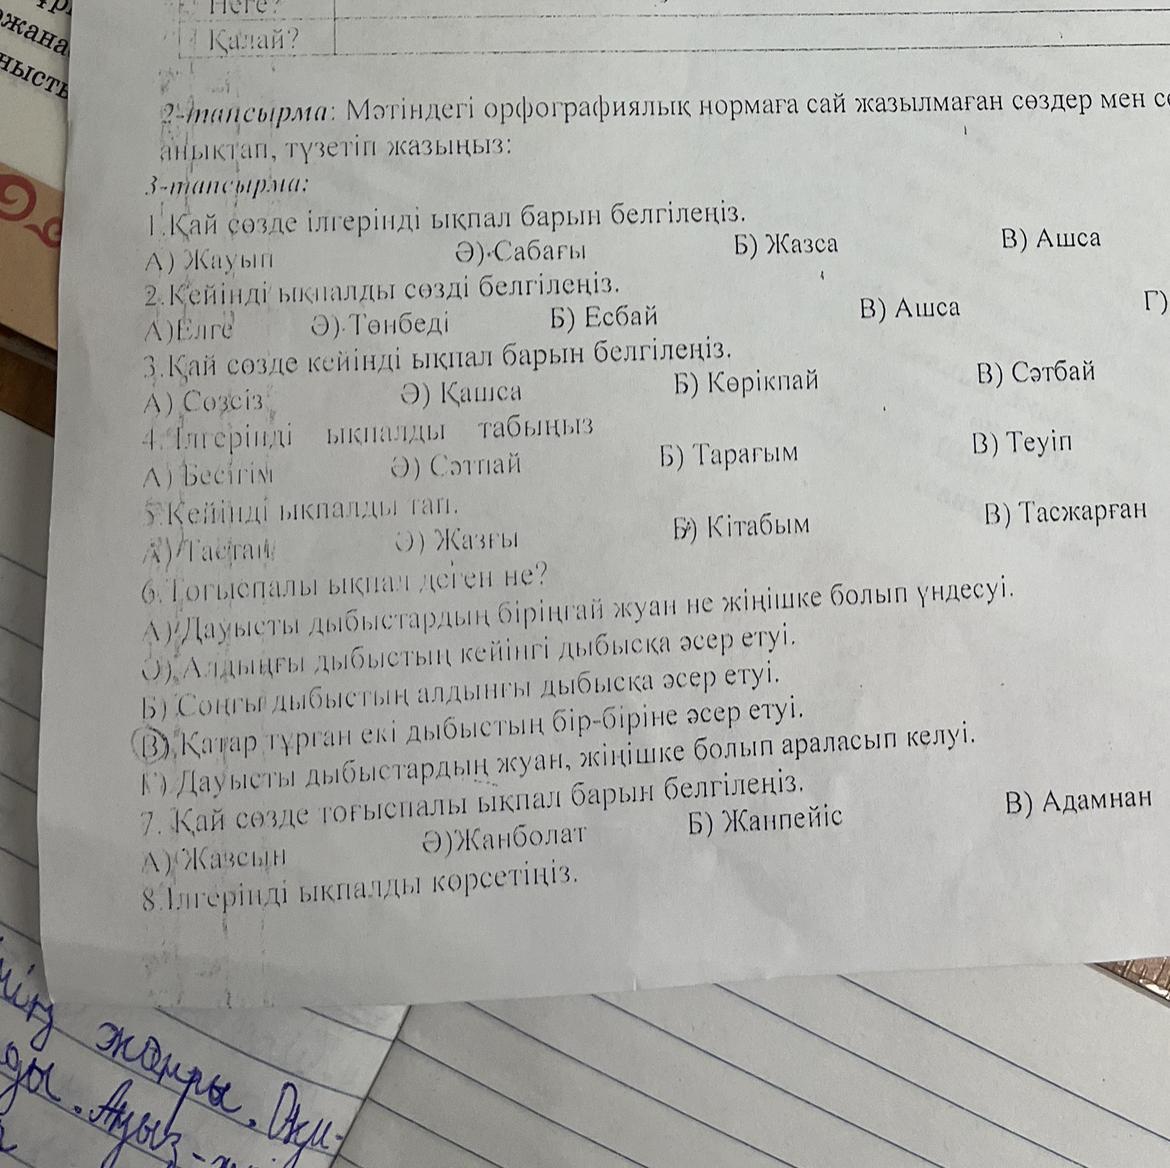 жана
нысть
Неге?
Қалай?
2-тапсырма: Мәтіндегі орфографиялық нормаға сай жазылмаған сөздер мен
анықтап, түзетіп жазыңыз:
3-тапсырма:
1.Қай сөзде ілгерінді ықпал барын белгілеңіз.
А) Жауып Ә) Сабағы Б) Жазса В) Ашса
2.Кейінді ықпалды сөзді белгілеңіз.
А)Елге Ә) Төнбеді Б) Есбай В) Ашса Г)
3.Қай сөзде кейінді ықпал барын белгілеңіз.
А) Сөзсіз Ә) Қашса Б) Көрікпай В) Сәтбай
4.Ілгерінді ықпалды табыңыз
А) Бесігім Ә) Сәтпай Б) Тарағым В) Теуіп
5.Кейінді ықпалды тап.
А) Тастан Ә) Жазғы Б) Кітабым В) Тасжарған
6.Тоғыспалы ықпал деген не?
А) Дауысты дыбыстардың біріңғай жуан не жіңішке болып үндесуі.
Ә) Алдыңғы дыбыстың кейінгі дыбысқа әсер етуі.
Б) Соңғы дыбыстың алдынғы дыбысқа әсер етуі.
В) Қатар тұрған екі дыбыстың бір-біріне әсер етуі.
Г) Дауысты дыбыстардың жуан, жіңішке болып араласып келуі.
7. Қай сөзде тоғыспалы ықпал барын белгілеңіз.
А) Жазсын Ә)Жанболат Б) Жанпейіс В) Адамнан
8.Ілгерінді ықпалды көрсетіңіз.
жанры.
Аңыз-